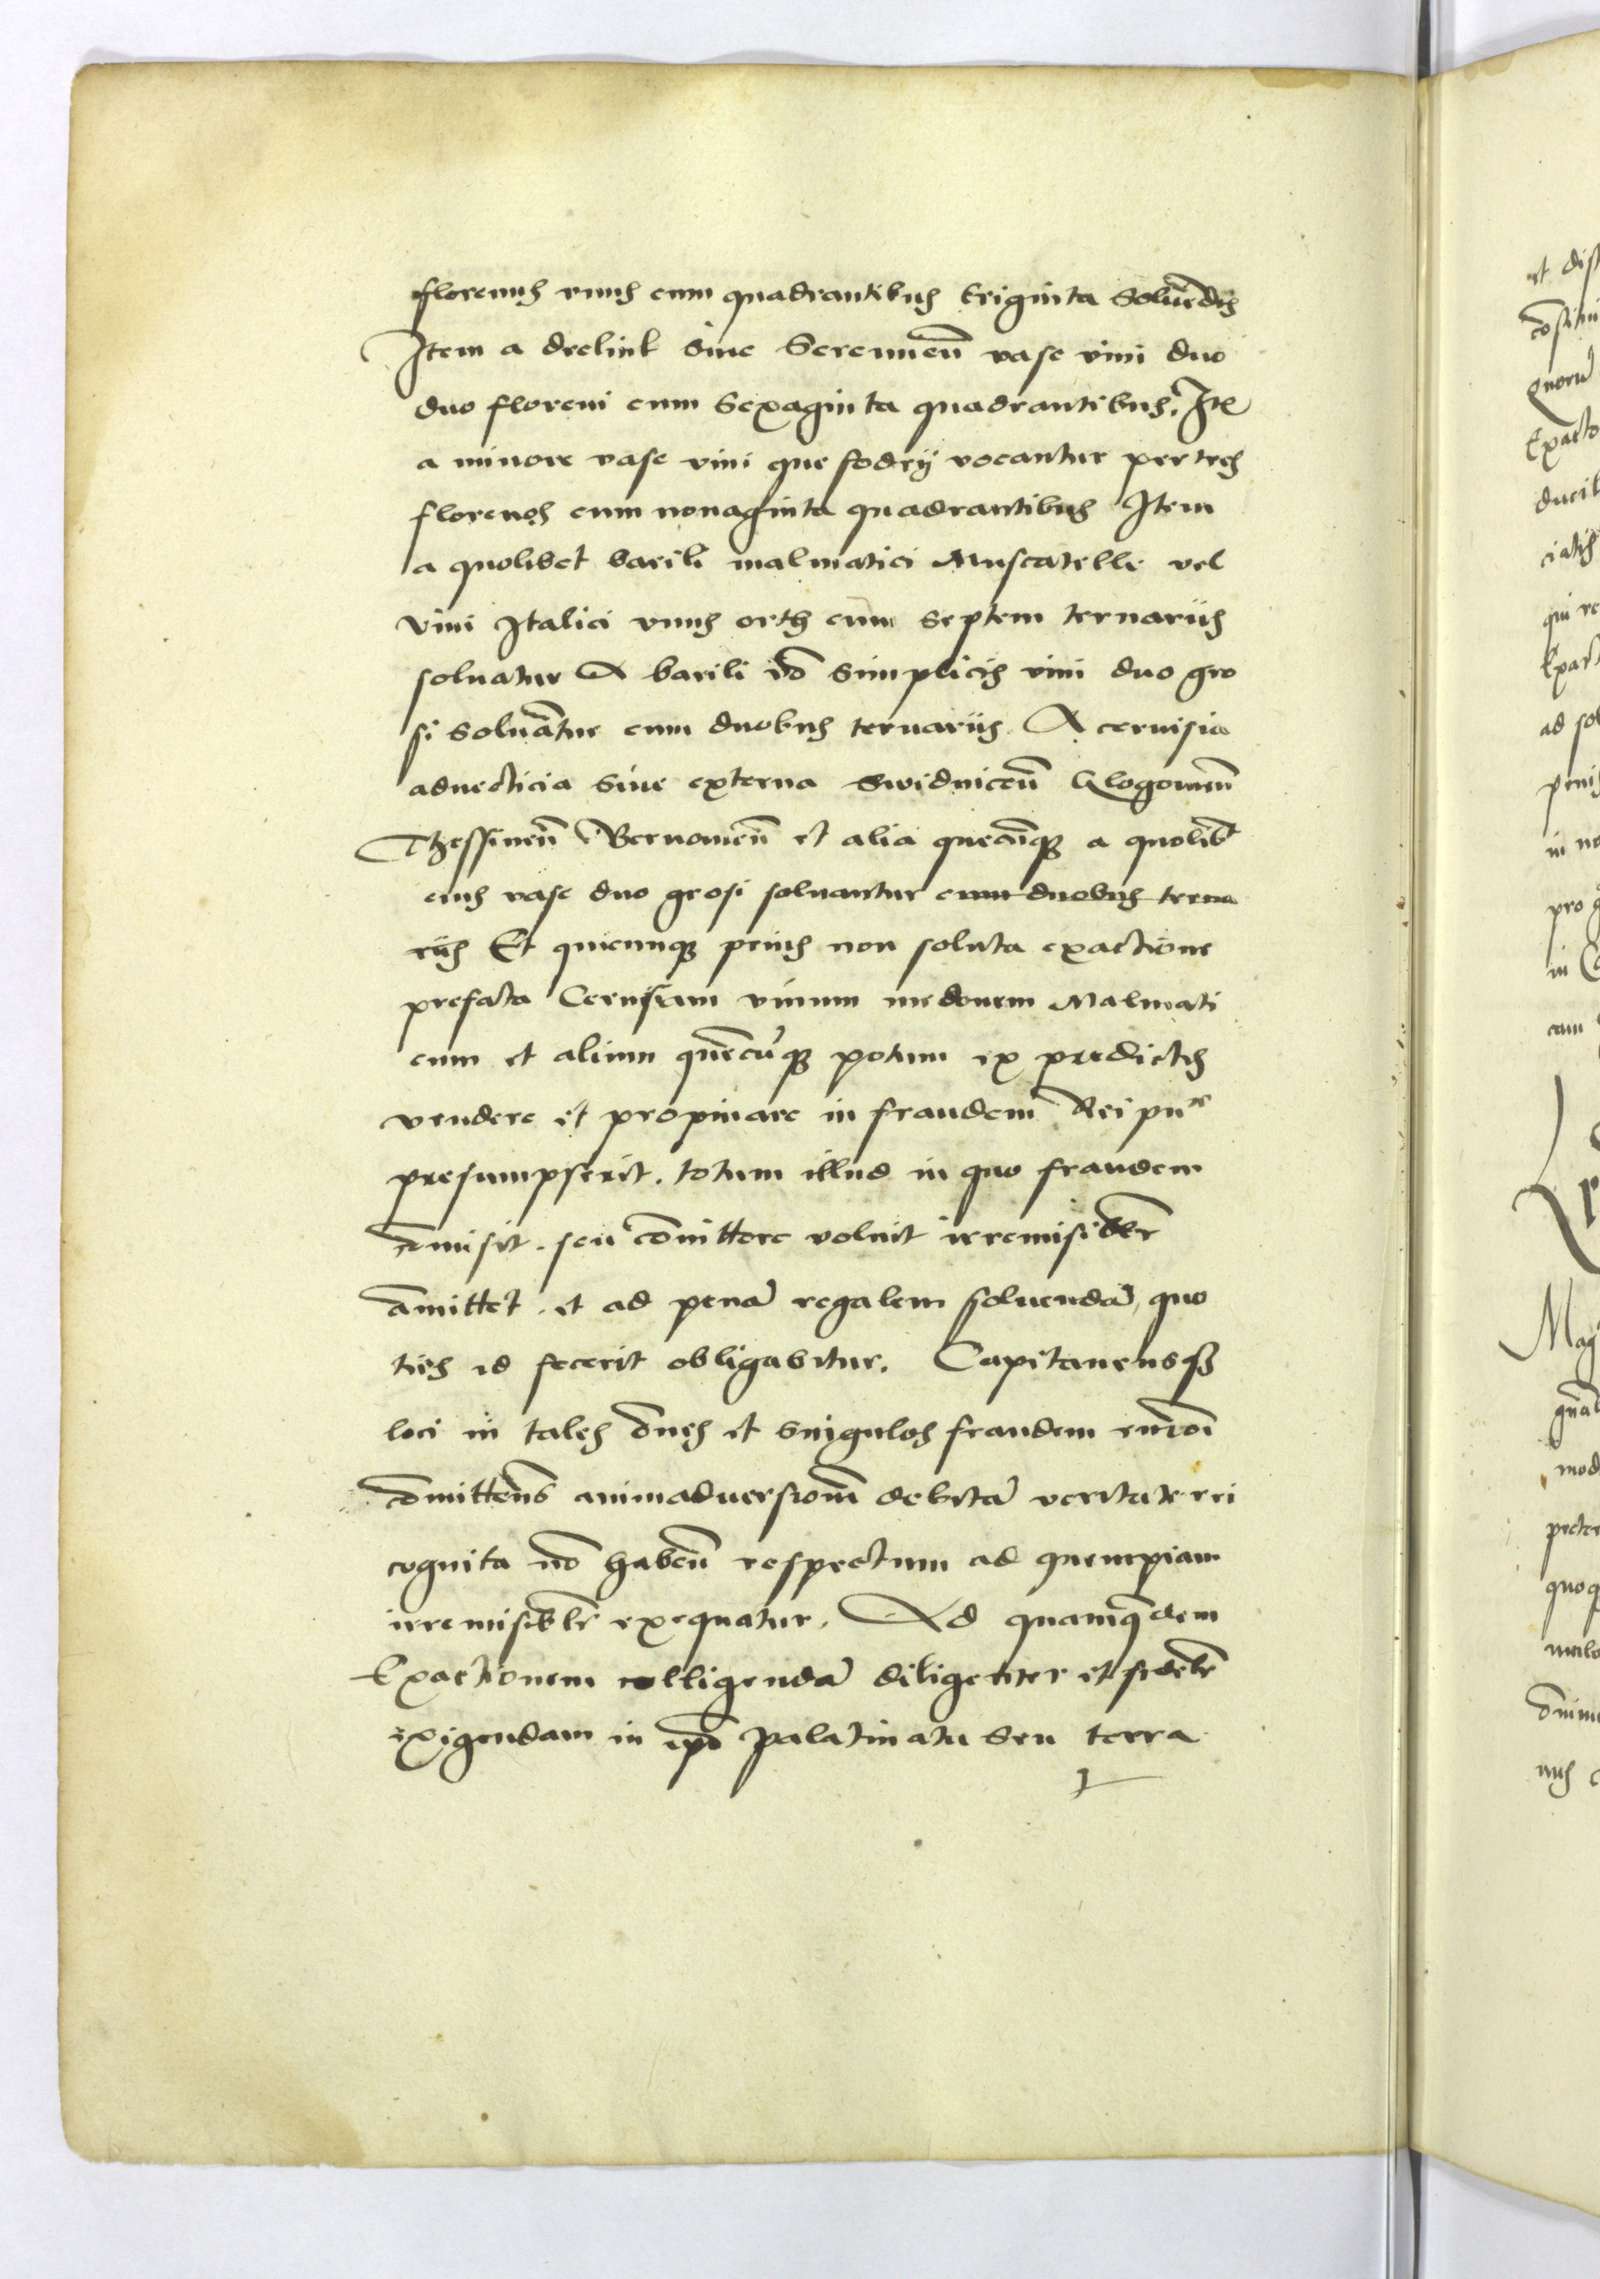 florenus unus cum quadrantibus triginta Soluēdis
Item a drelink siue Seremieñ vase vini duo
duo floreni cum Sexaginta quadrantibus. Itē
a minore vase vini que fodrij vocantur per tres
florenos cum nonaginta quadrantibus Item
a quolibet barili malmatici Muscatelle vel
vini Italici unus orth cum septem ternariis
soluatur A barili vō simplicis vini duo gro
si soluātur cum duobus ternariis. A ceruisia
aduecticia siue externa Swidniceñ Glogouieñ
Thessineñ Bernomeñ et alia quecūq₃ a quolibet
eius vase duo grosi soluantur cum duobus terna
riis Et quicunq₃ prius non soluta exactione
prefata Ceruisiam vinum medonem Malmati
cum et alium quēcūq₃ potum ex predictis
vendere et propinare in fraudem Rei pu^ce
presumpserit. totum illud in quo fraudem
cōmisit. seu cōmittere voluit irremisibilr̄
āmittet. et ad penā regalem soluendā, quo
ties id fecerit obligabitur. Capitaneusq₃
loci in tales ōnes et singulos fraudem
cōmitteñs animaduersionē debitā veritate rei
cognita nō habeñ respectum ad quempiam
irremisiblr̄ exequatur. Ad quamquidem
Exactionem colligendā diligenter et fidelr̄
exigendam in ip̄o palatinatu seu terra